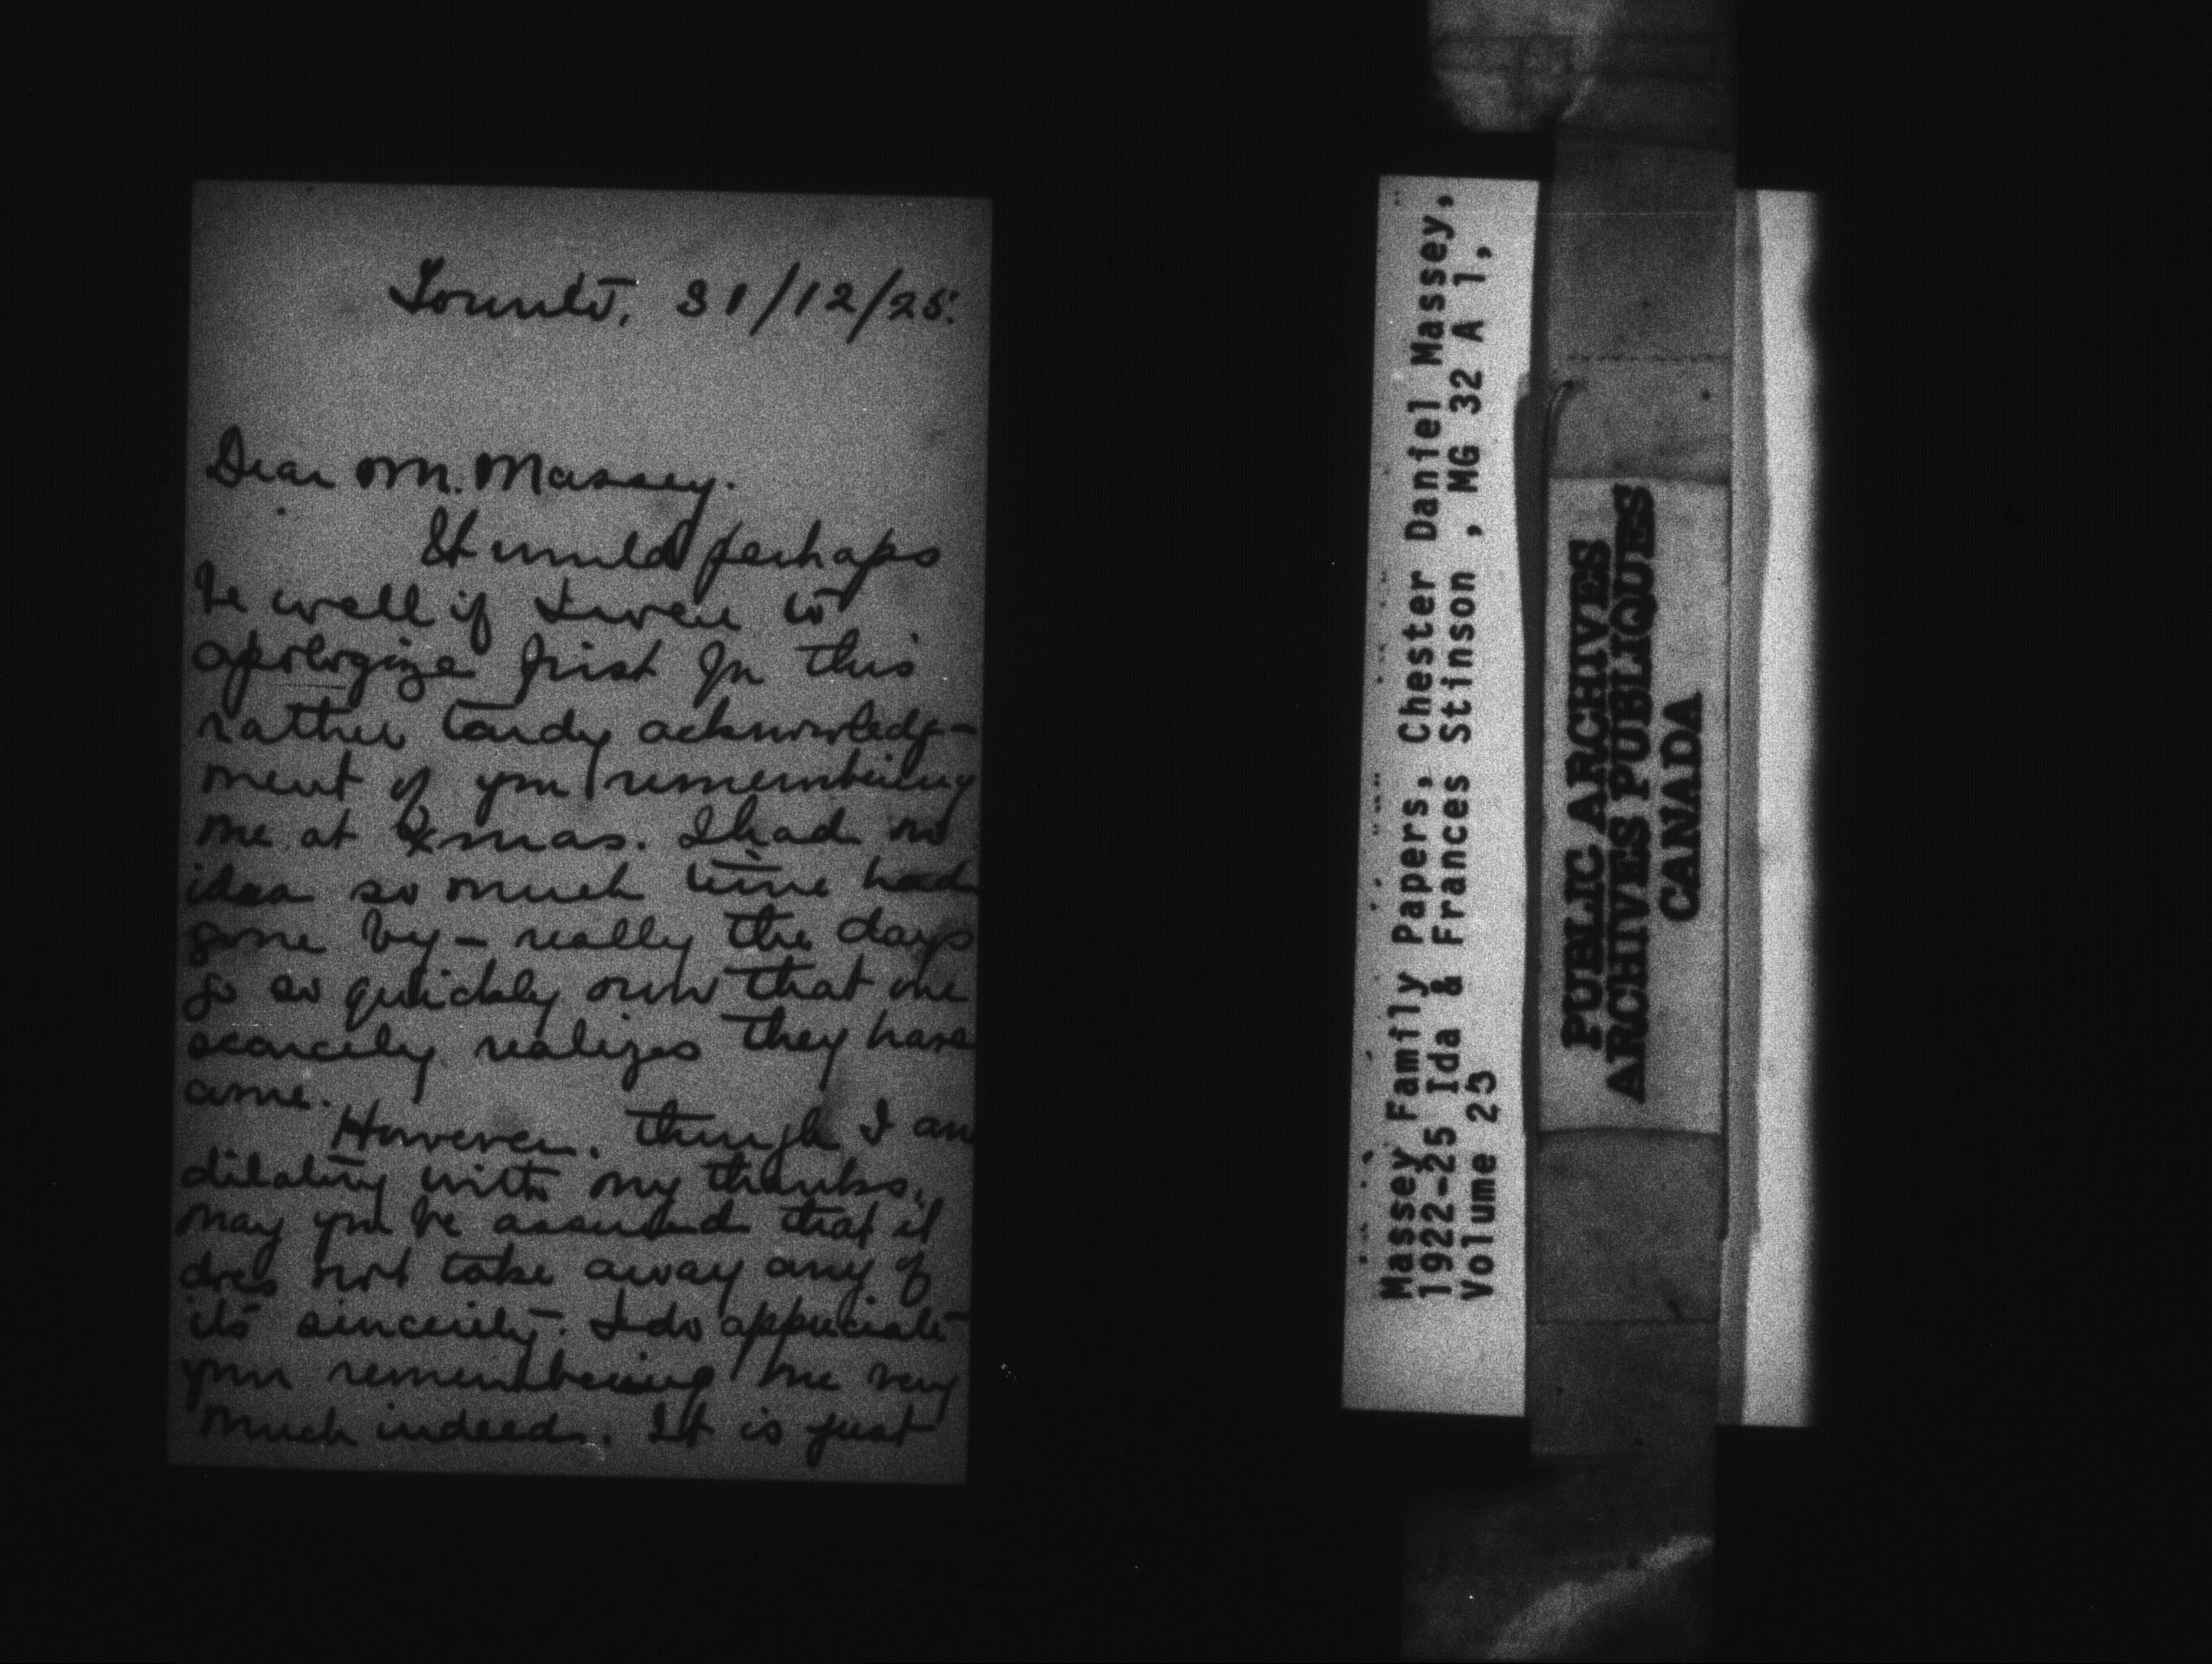 Toronto, 31/12/25.
Dear Mr. Massey.
It would perhaps
be well if I were to
apologize first for this
rather tardy acknowledg-
ment of your remembering
me at Xmas. I had no
idea so much time had
gone by - really the days
go so quickly now that one
scarcely realizes they have
come.
However, though I am
dilatory with my thanks,
may you be assured that it
does not take away any of
its sincerity. I do appreciate
your remembering me very
much indeed. It is just
Massey Family Papers, Chester Daniel Massey,
1922-25 Ida & Frances Stinson , MG 32 A 1,
Volume 23
PUBLIC ARCHIVES
ARCHIVES PUBLIQUES
CANADA